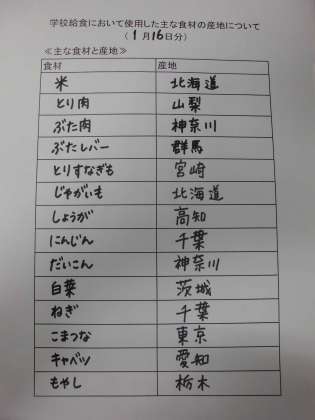 学校給食において使用した主な食材の産地について
(1月16日分)
≪主な食材と産地≫
食材 産地
米 北海道
とり肉 山梨
ぶた肉 神奈川
ぶたレバー 群馬
とりすなぎも 宮崎
じゃがいも 北海道
しょうが 高知
にんじん 千葉
だいこん 神奈川
白菜 茨城
ねぎ 千葉
こまつな 東京
キャベツ 愛知
もやし 栃木